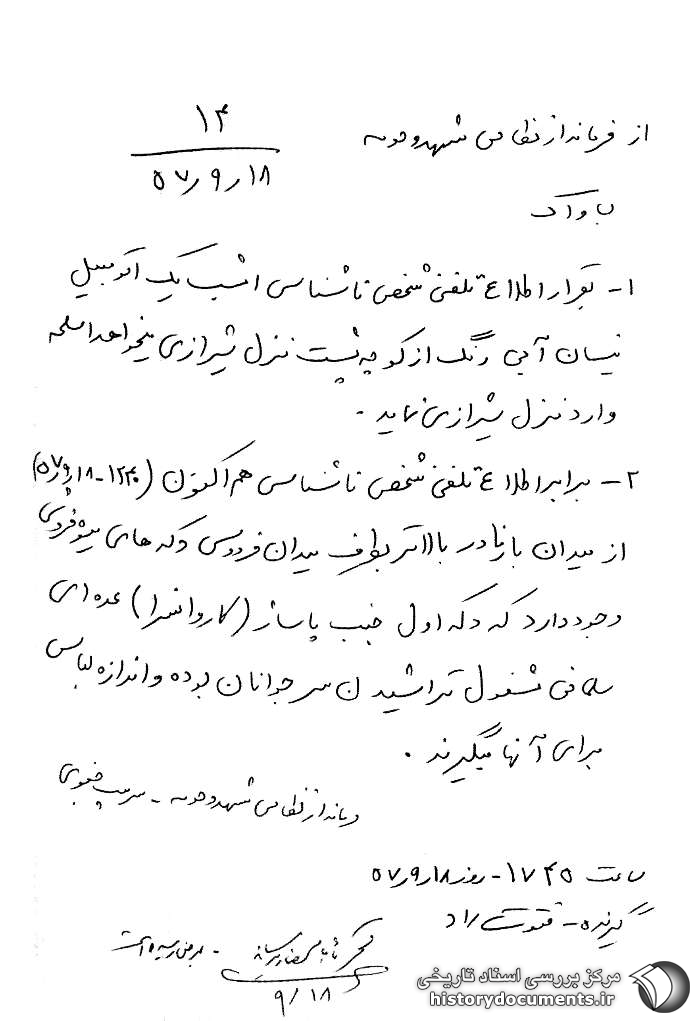 ۱۴
۱۸ر۹ر۵۷
از فرماندار نظامی مشهد و حومه
ب ساواک
۱- برابر اطلاع تلفنی شخص ناشناسی امشب یک اتومبیل
نیسان آبی رنگ از کوچه پشت منزل شیرازی میخواهد اسلحه
وارد منزل شیرازی نماید .
۲- برابر اطلاع تلفنی شخص ناشناسی هم اکنون (۱۲۳۰-۱۸ر۹ر۵۷)
از میدان بار نادر بالاتر بطرف میدان فردوسی دکه های میوه فروشی
وجود دارد که دکه اول جنب پاساژ (کاروانسرا) عده ای
سلمانی مشغول تراشیدن سر جوانان بوده و اندازه لباس
برای آنها میگیرند .
فرماندار نظامی مشهد و حومه - سرتیپ
ساعت ۱۷۴۵- روز ۱۸ر۹ر۵۷
گیرنده - راد
- بعرض رسیده است
۹/۱۸
مرکز بررسی اسناد تاریخی
historydocuments.ir